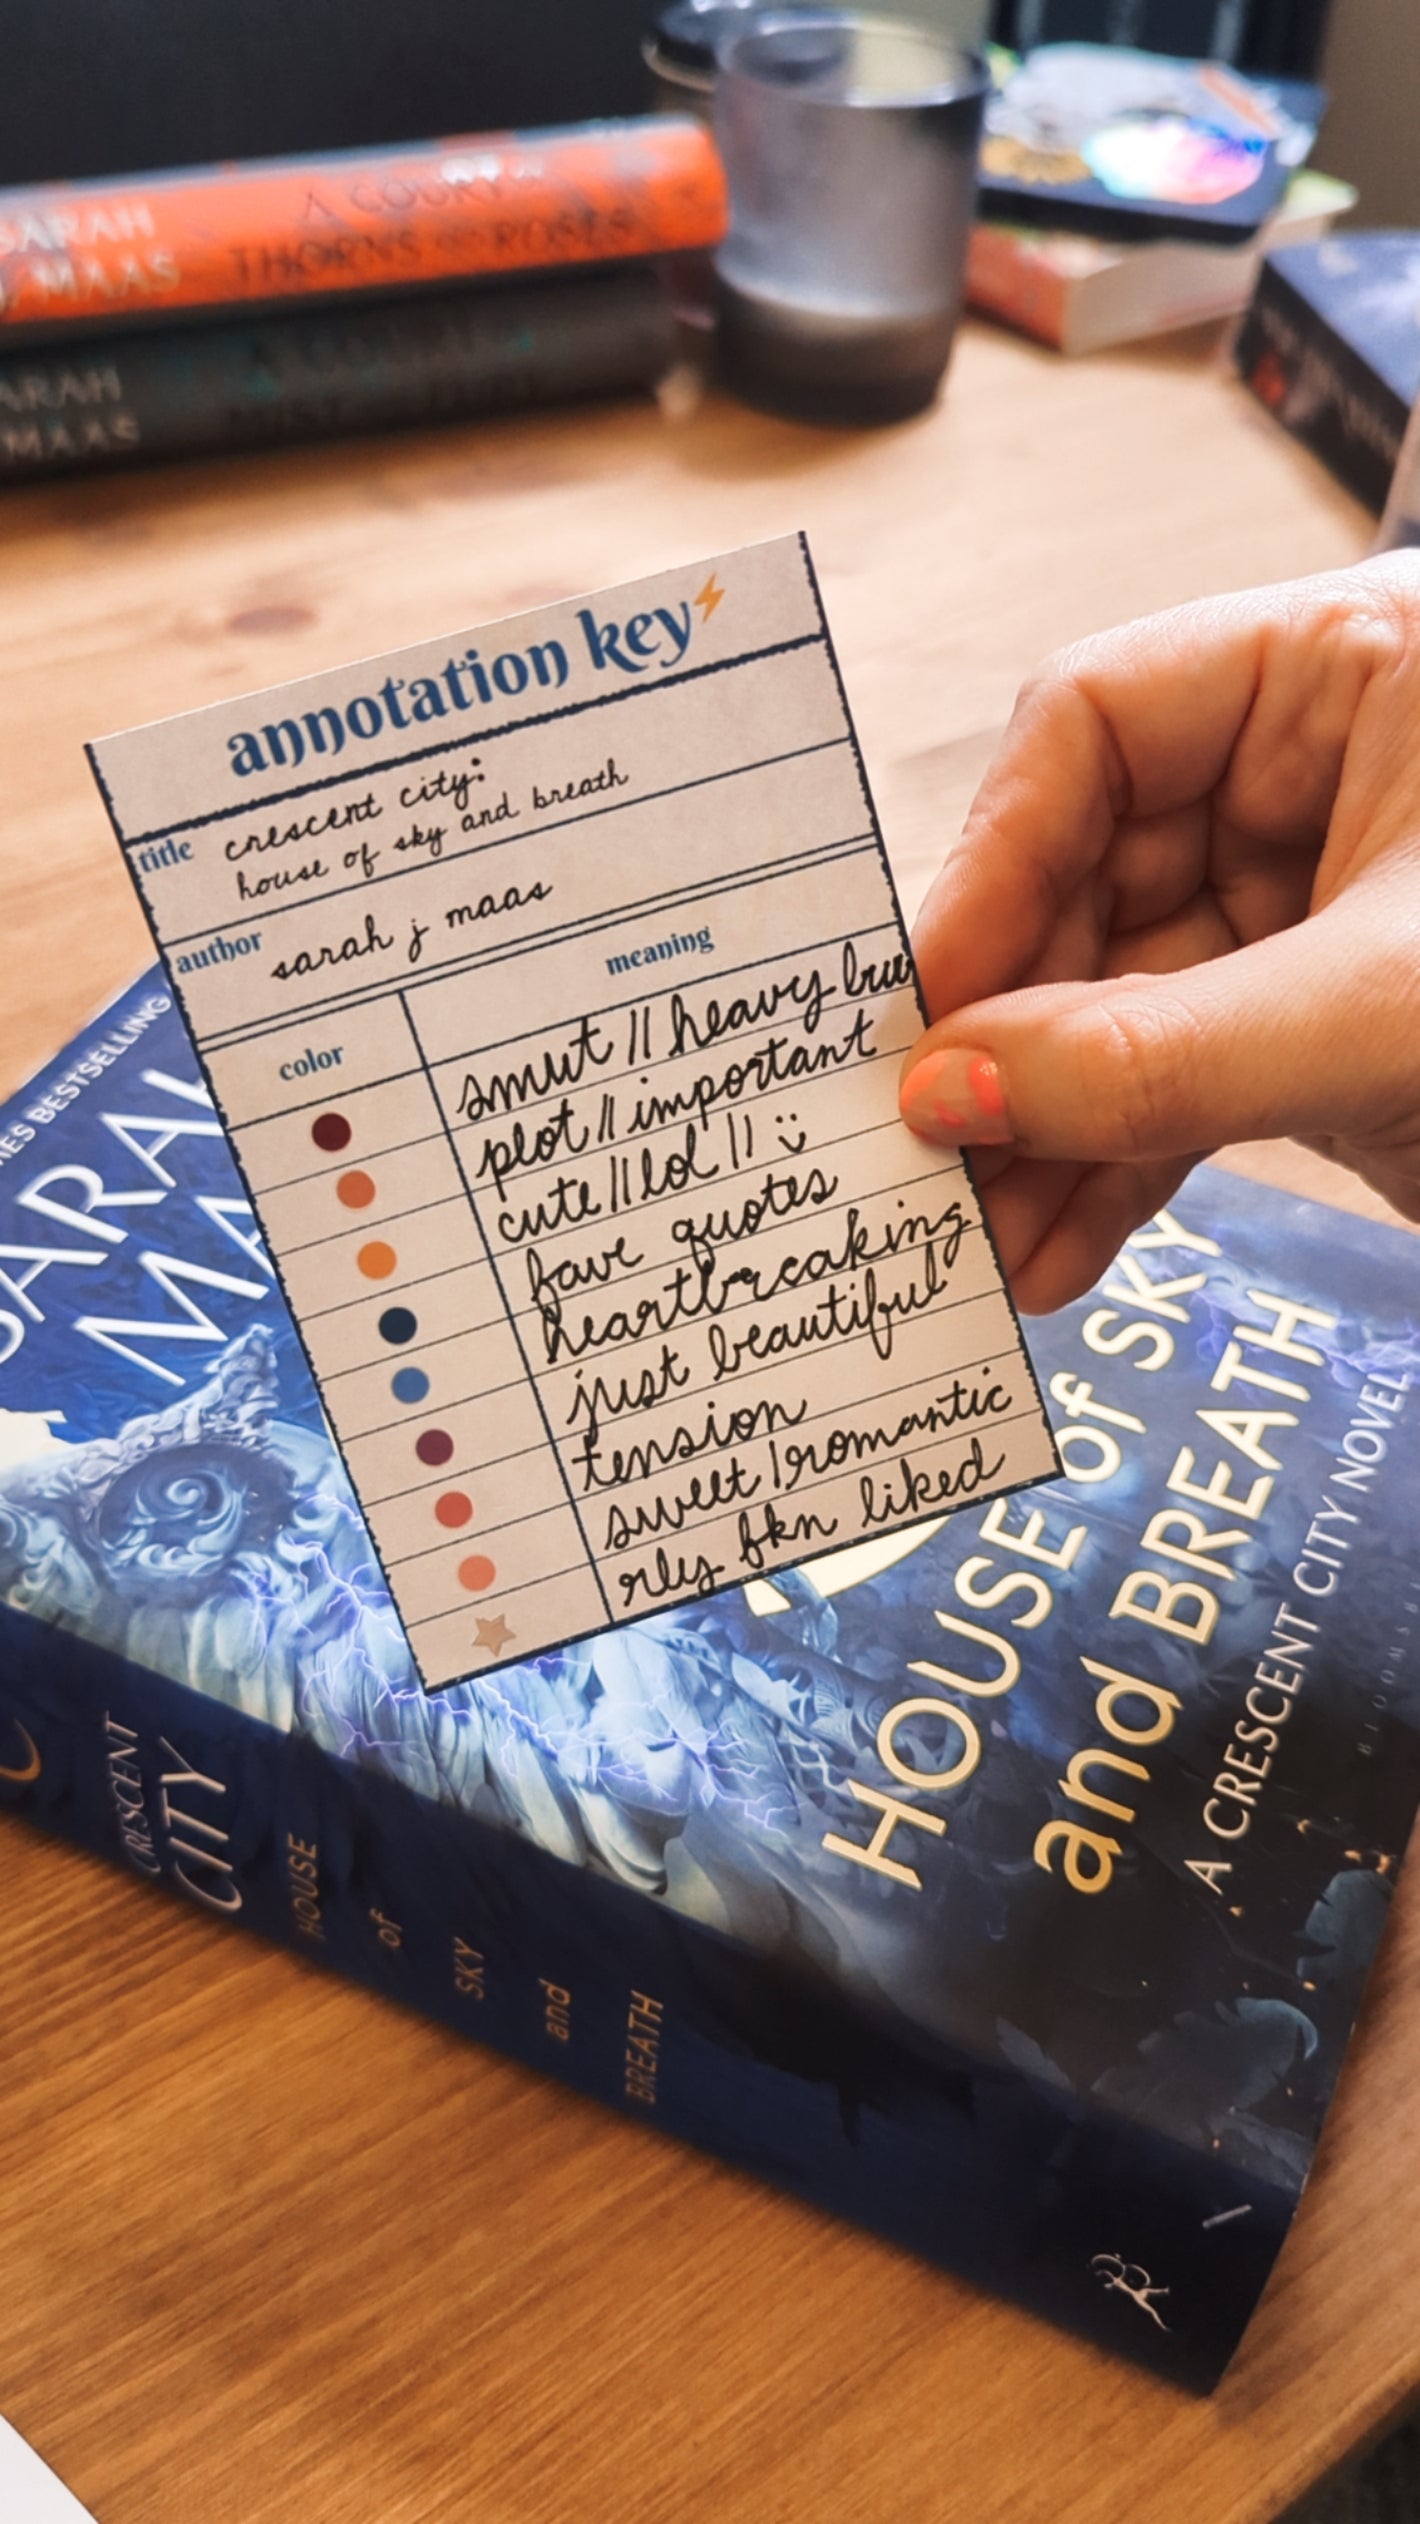 SARAH
J. MAAS
A COURT OF
THORNS and ROSES
ARAH
MAAS
annotation key
title
crescent city:
house of sky and breath
author
sarah j maas
color
meaning
smut || heavy
plot || important
cute || lol || :)
fave quotes
heartbreaking
just beautiful
tension
sweet | romantic
rly fkn liked
MES BESTSELLING
SARAH
MA
HOUSE of SKY
and BREATH
A CRESCENT CITY NOVEL
BLOOMSB
CRESCENT
CITY
HOUSE
of
SKY
and
BREATH